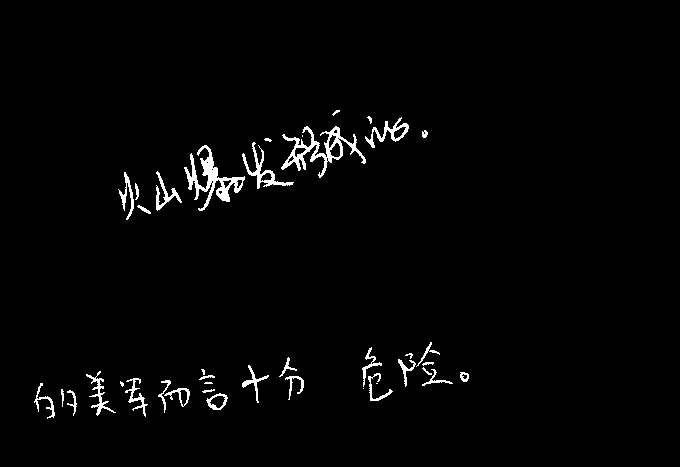 火山爆发形成的。
的美军而言十分 危险。